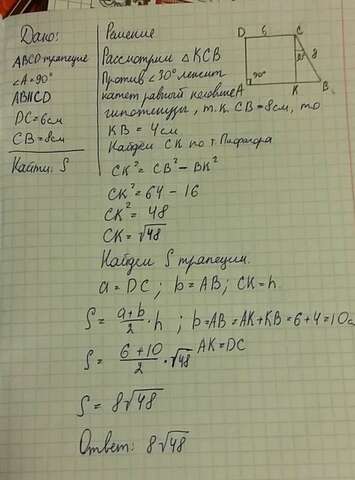 Дано:
ABCD трапеция
∠A=90°
AB||CD
DC=6см
CB=8см
Найти: S
Решение
Рассмотрим △KCB
Против ∠30° лежит
катет равный половине
гипотенузы, т.к. CB=8см, то
KB = 4см
Найдём CK по т. Пифагора
CK² = CB² - BK²
CK² = 64 - 16
CK² = 48
CK = √48
Найдём S трапеции.
a = DC; b = AB; CK = h.
S = (a+b)/2 · h ; b=AB=AK+KB=6+4=10с
AK=DC
S = (6+10)/2 · √48
S = 8√48
Ответ: 8√48
D 6 C
30° 8
90°
A K B